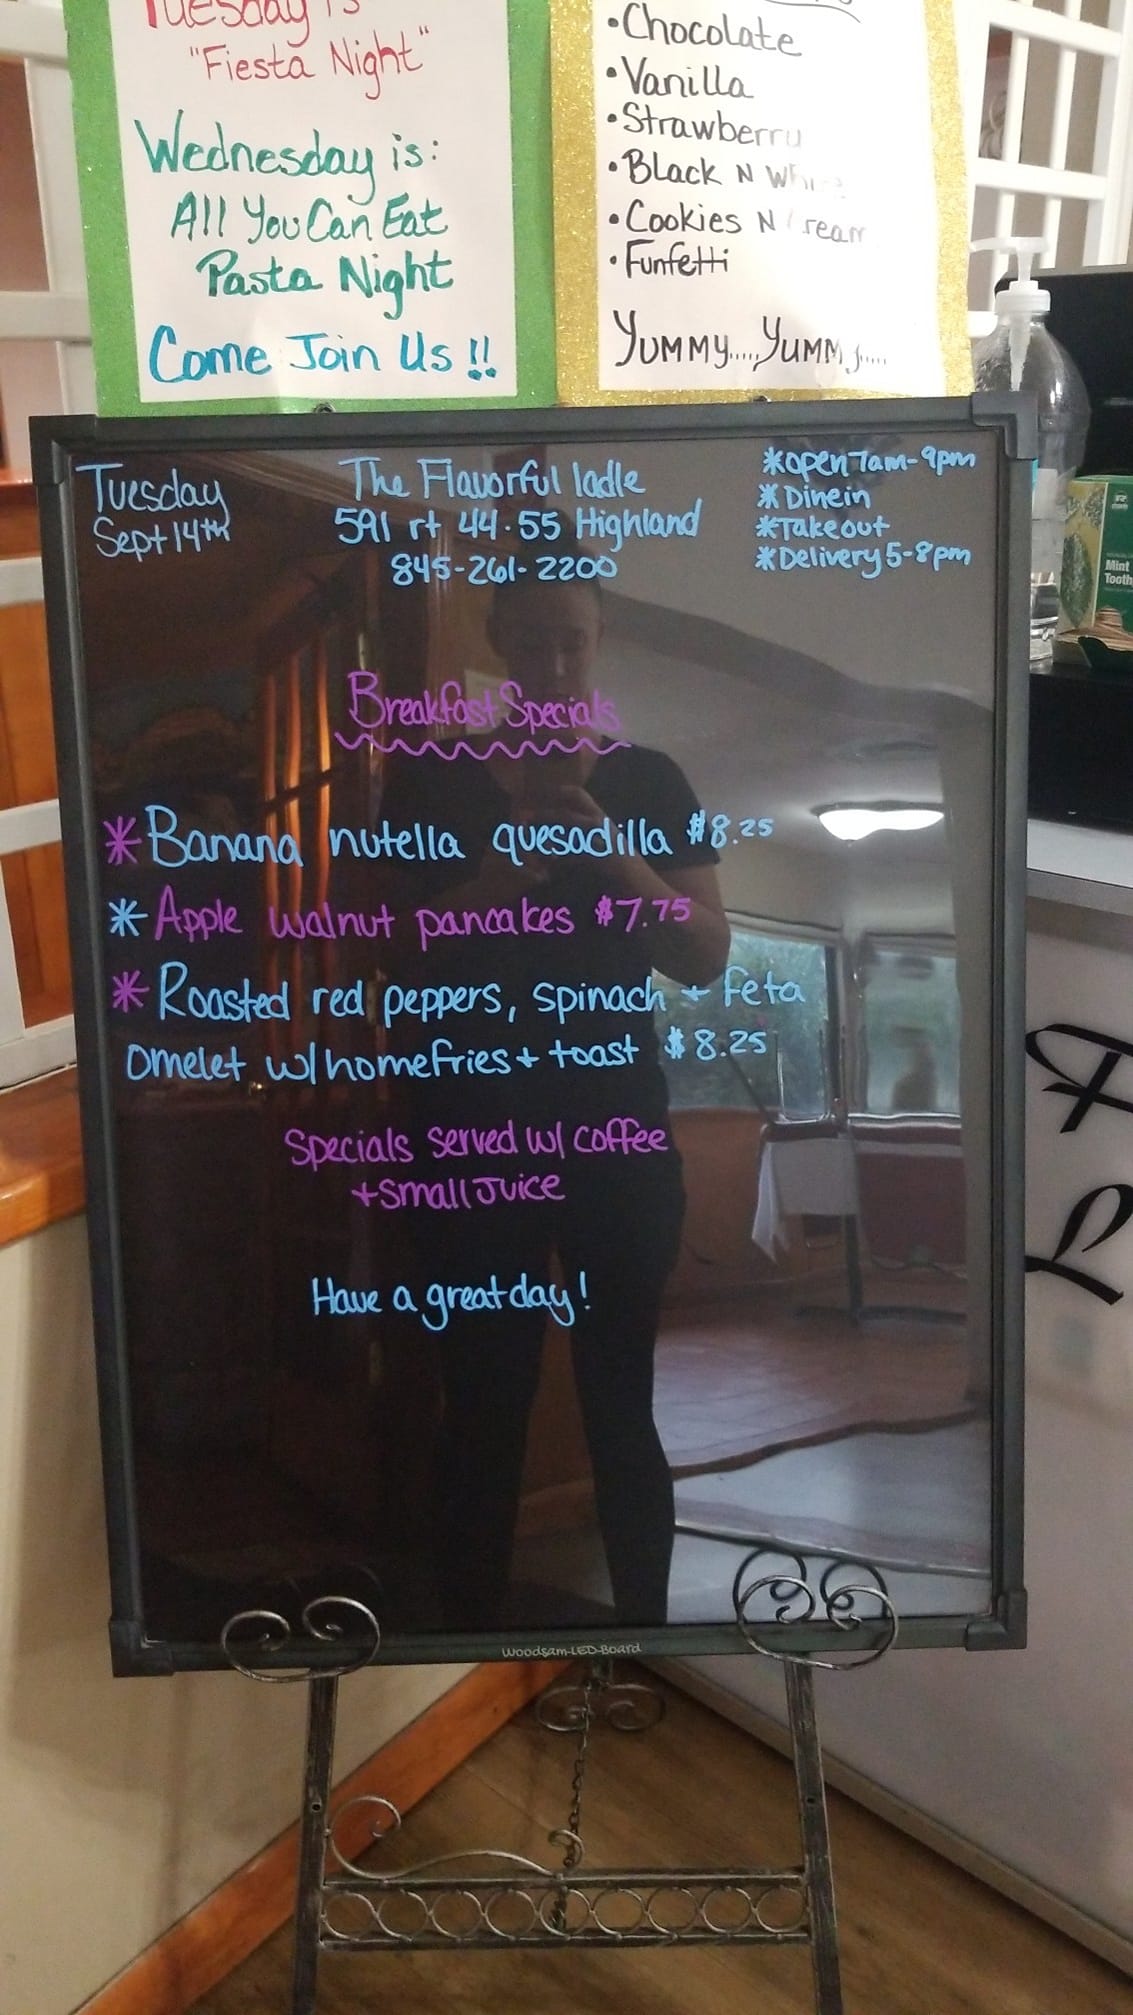 Tuesday is
"Fiesta Night"
Wednesday is:
All You Can Eat
Pasta Night
Come Join Us !!
• Chocolate
• Vanilla
• Strawberry
• Black N White
• Cookies N Cream
• Funfetti
Yummy.....Yummy.....
Tuesday
Sept 14th
The Flavorful ladle
591 rt 44-55 Highland
845-261-2200
*open 7am-9pm
*Dinein
*Takeout
*Delivery 5-8pm
Breakfast Specials
*Banana nutella quesadilla $8.25
*Apple walnut pancakes $7.75
*Roasted red peppers, spinach + feta
omelet w/homefries + toast $8.25
Specials served w/ coffee
+ small Juice
Have a great day!
Woodsam-LED-Board
Mint
Tooth
F
L